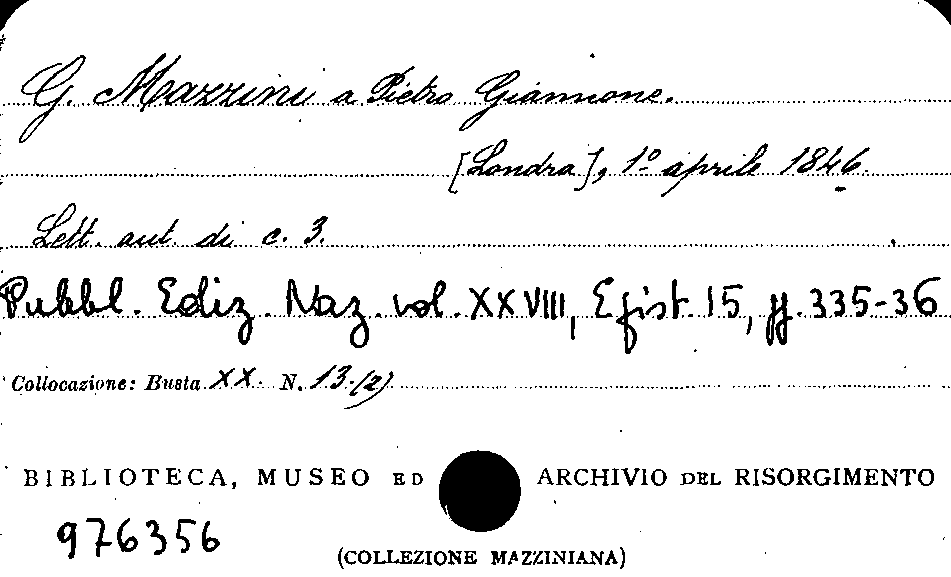 G. Mazzini a Pietro Giannone.
[Londra], 1º aprile 1846.
Lett. aut. di c. 3.
Pubbl. Ediz. Naz. vol. XXVIII, Epist. 15, pp. 335-36
Collocazione: Busta XX. N. 13.(2)
BIBLIOTECA, MUSEO ED ARCHIVIO DEL RISORGIMENTO
976356
(COLLEZIONE MAZZINIANA)